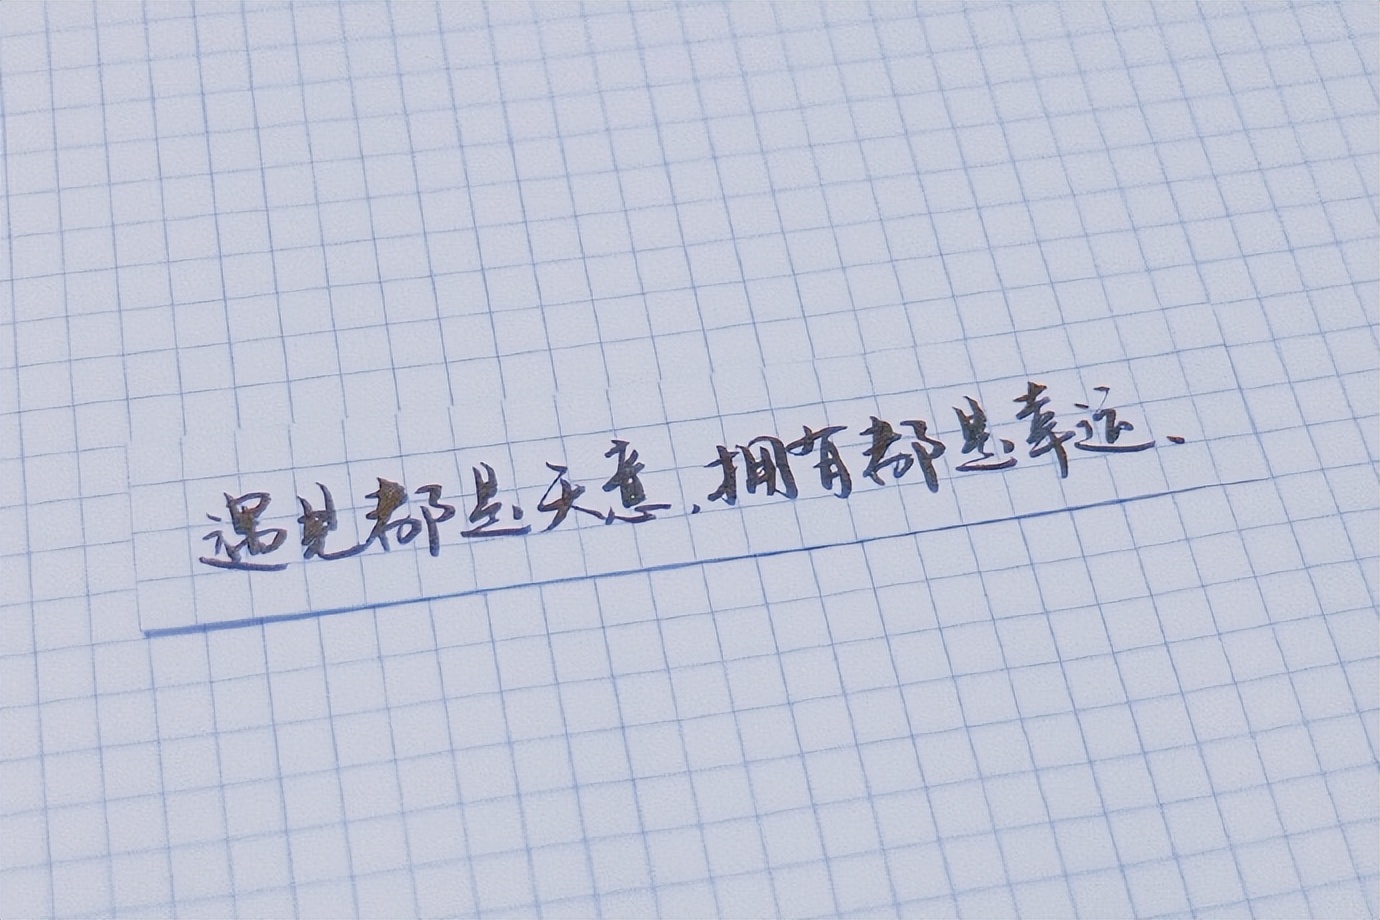 遇见都是天意,拥有都是幸运.